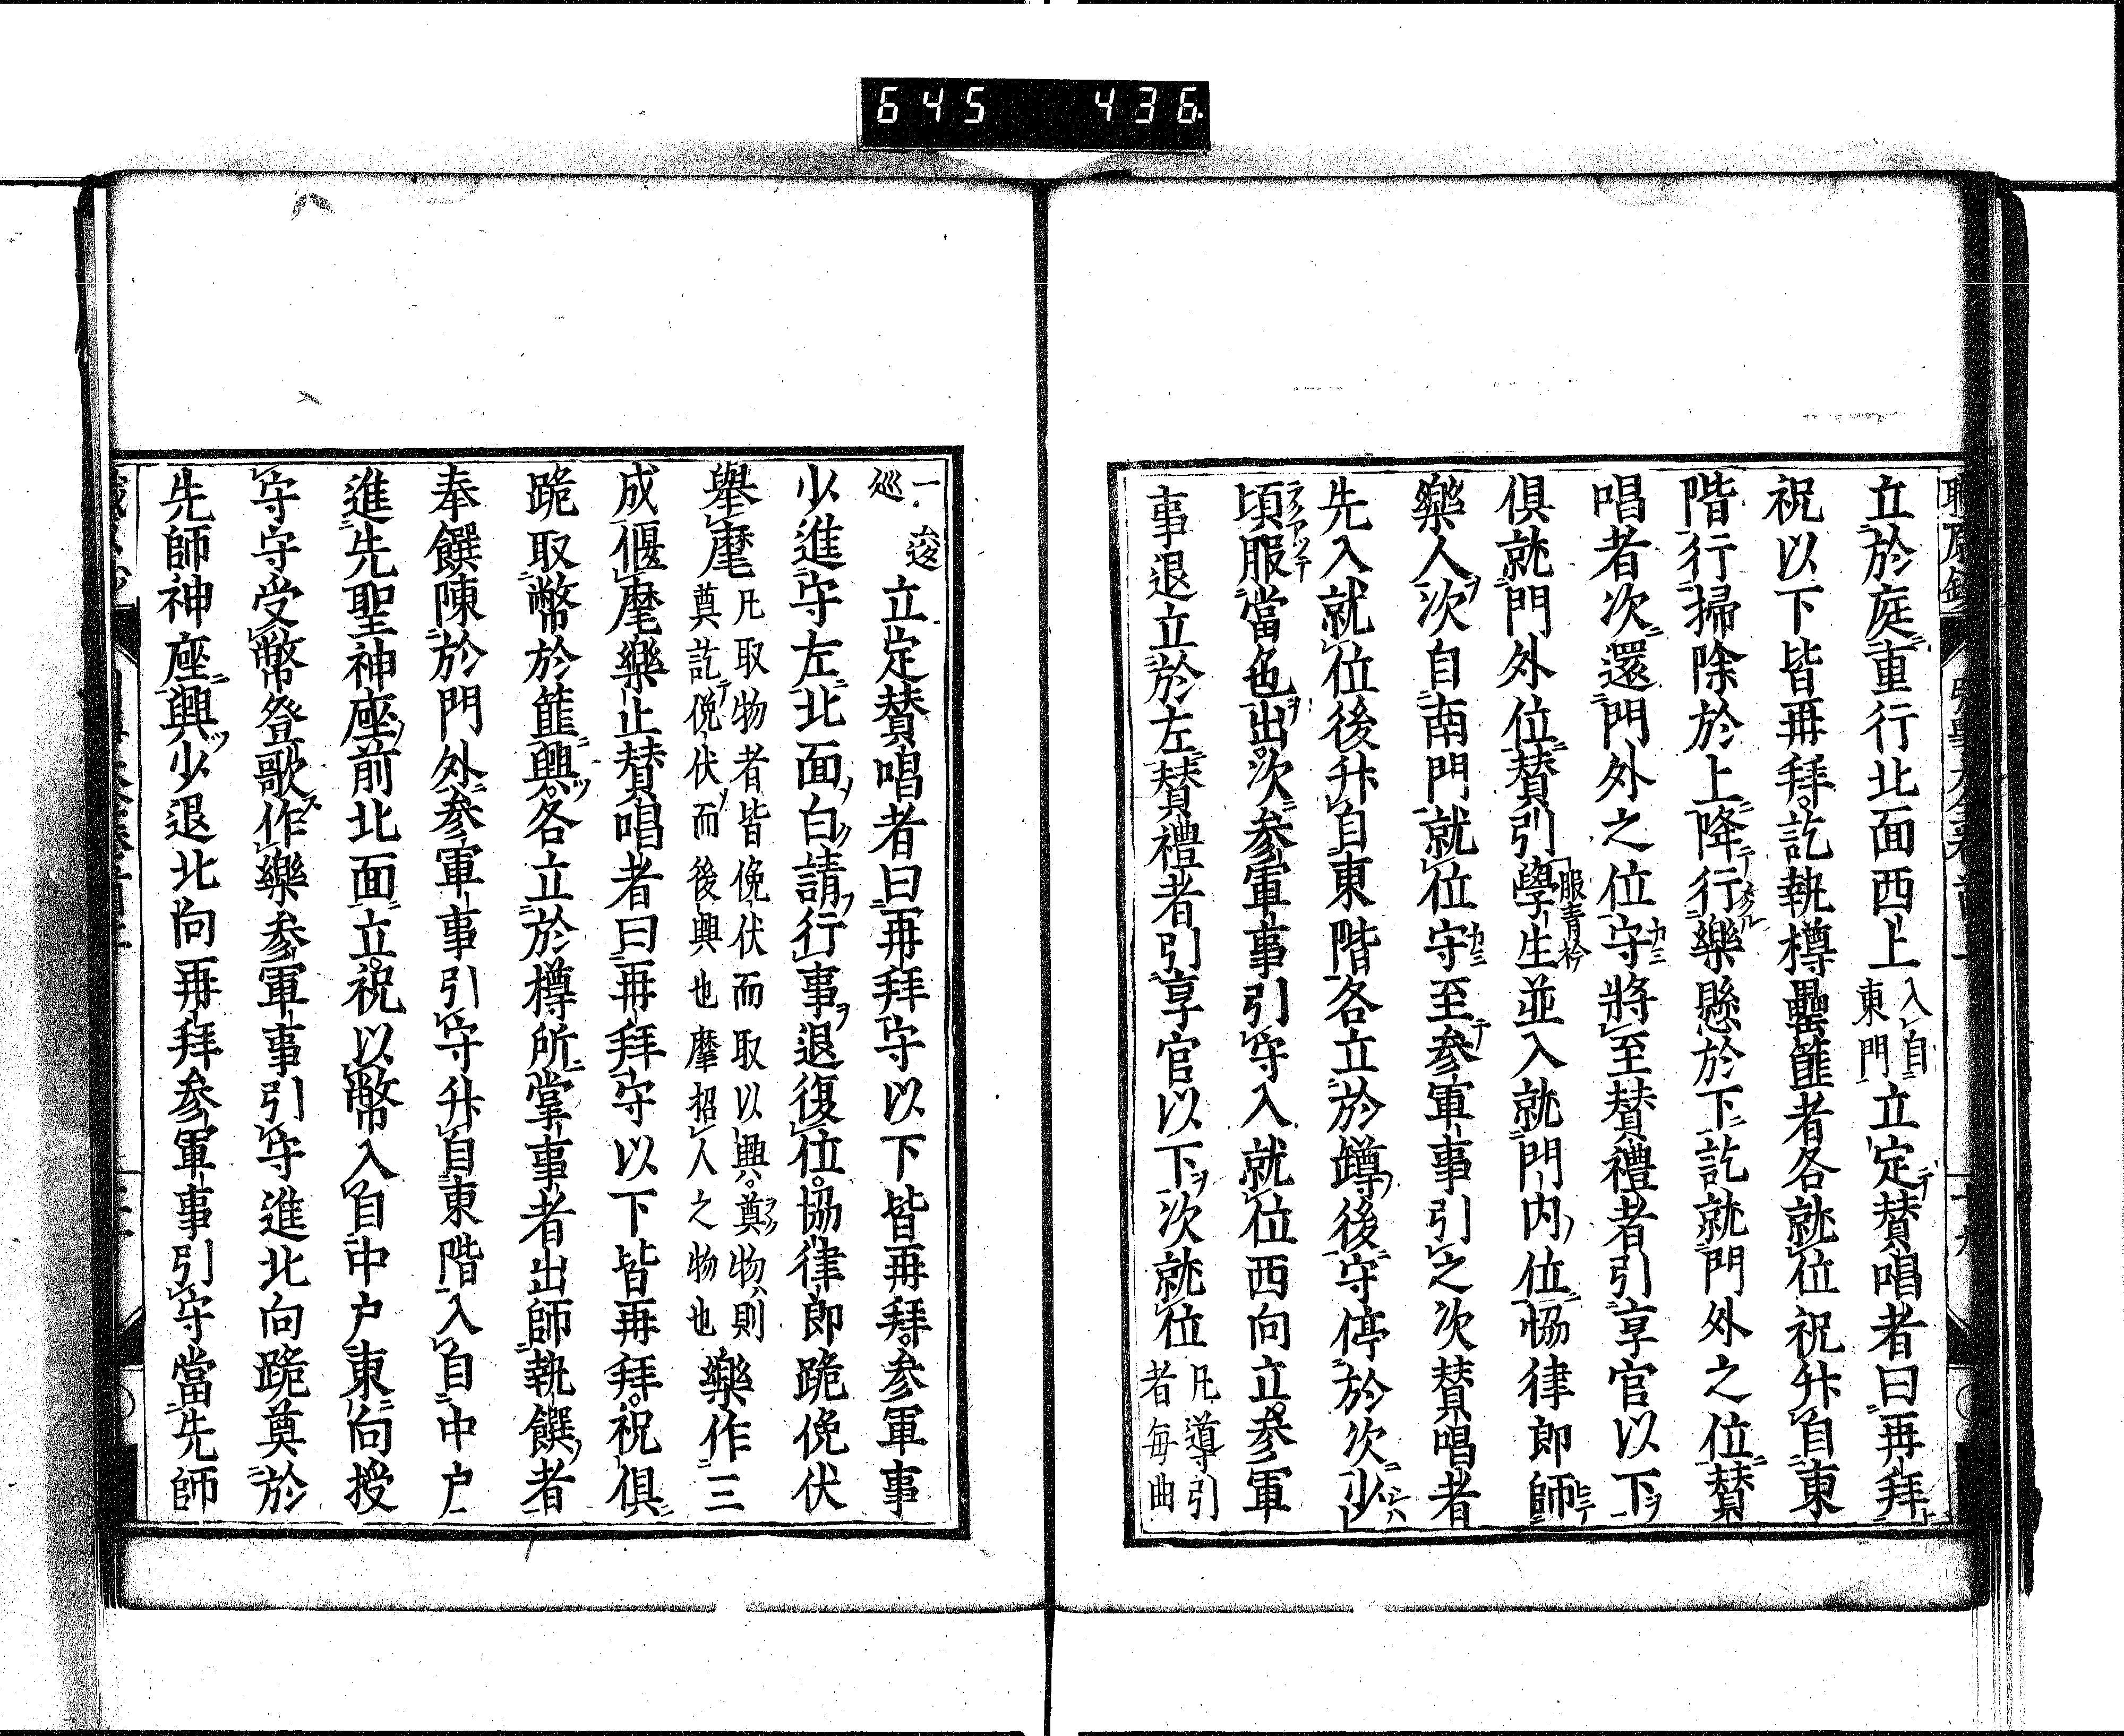 645 436
立於庭重行北面西上入自東門立定賛唱者曰再拜
祝以下皆再拜訖執樽罍篚者各就位祝升自東
階行掃除於上降行樂懸於下訖就門外之位賛
唱者次還門外之位守將至賛禮者引享官以下
俱就門外位賛引學生服青衿並入就門内位協律郎師
樂人次自南門就位守至参軍事引之次賛唱者
先入就位後升自東階各立於罇後守停於次少
頃服當色出次参軍事引守入就位西向立参軍
事退立於左賛禮者引享官以下次就位凡導引者毎曲
一逡巡立定賛唱者曰再拜守以下皆再拜参軍事
少進守左北面白請行事退復位協律郎跪俛伏
舉麾凡取物者皆俛伏而取以興奠物則奠訖俛伏而後興也麾招人之物也樂作三
成偃麾樂止賛唱者曰再拜守以下皆再拜祝俱
跪取幣於篚興各立於樽所掌事者出師執饌者
奉饌陳於門外参軍事引守升自東階入自中户
進先聖神座前北面立祝以幣入自中户東向授
守守受幣登歌作樂参軍事引守進北向跪奠於
先師神座興少退北向再拜参軍事引守當先師